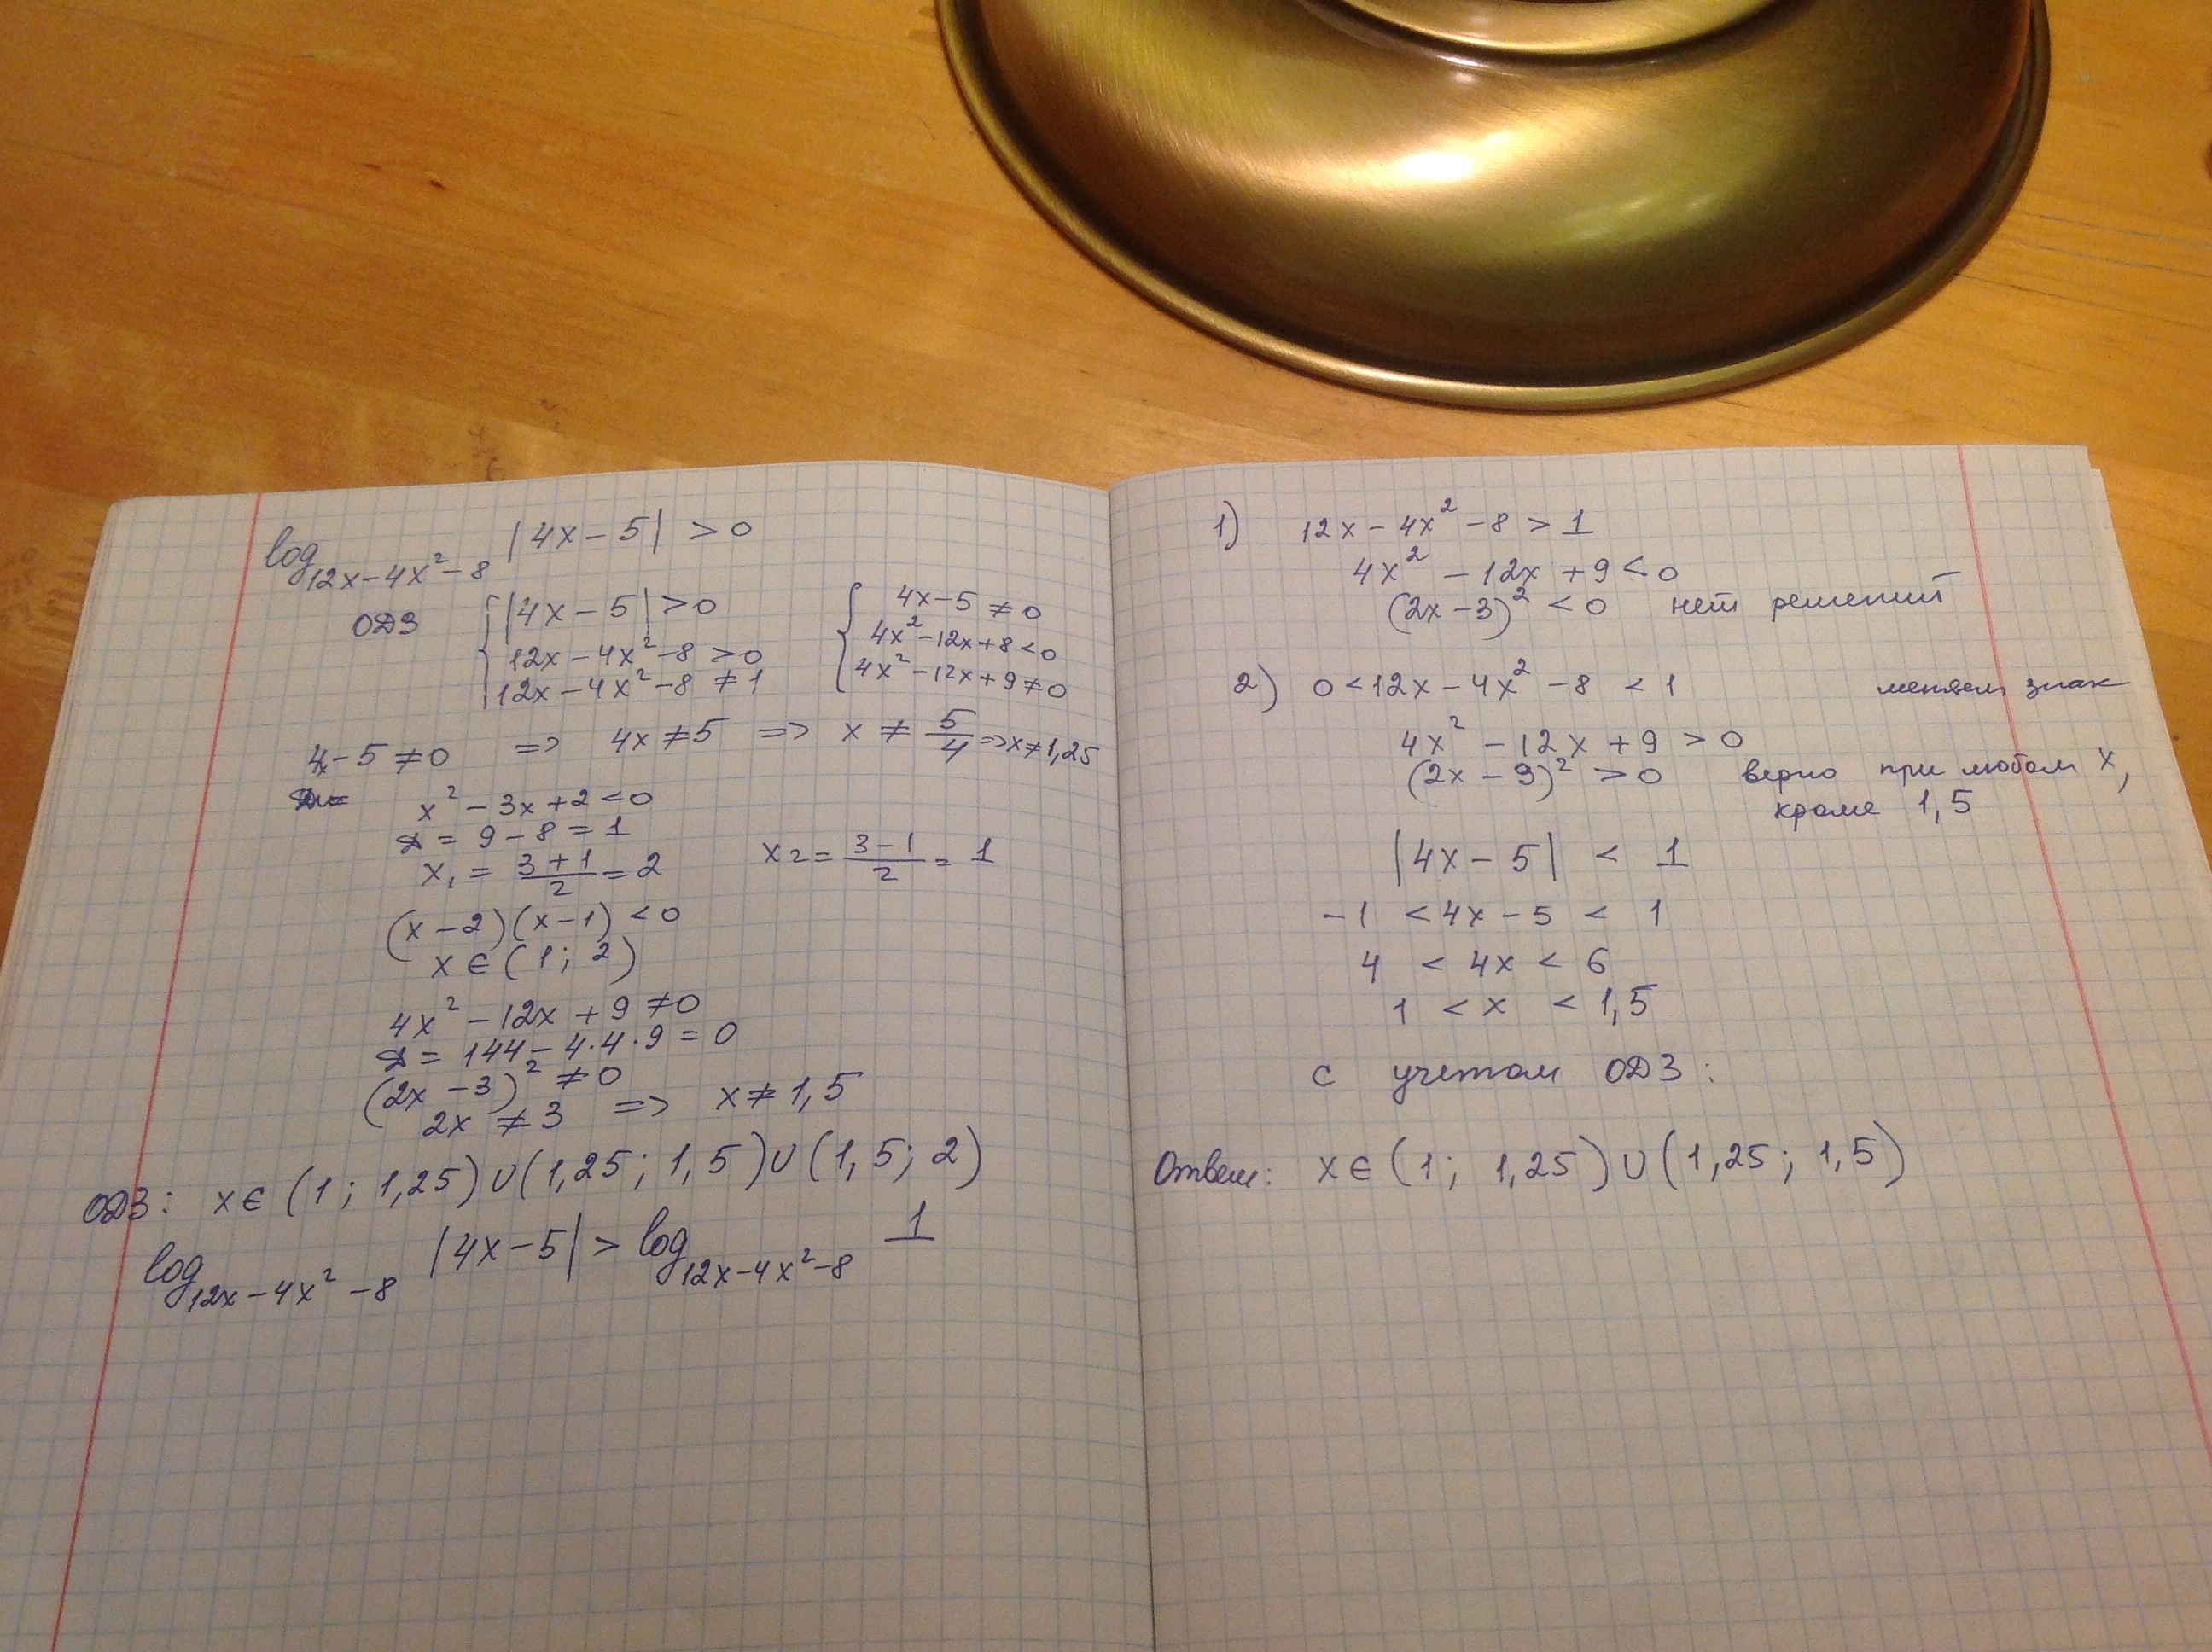 log₁₂ₓ₋₄ₓ²₋₈ |4x-5| > 0
ОДЗ { |4x-5| > 0   { 4x-5 ≠ 0
12x-4x²-8 > 0   4x²-12x+8 < 0
12x-4x²-8 ≠ 1   4x²-12x+9 ≠ 0
4x-5 ≠ 0 => 4x ≠ 5 => x ≠ 5/4 => x ≠ 1,25
x²-3x+2 < 0
D = 9-8 = 1
x₁ = (3+1)/2 = 2   x₂ = (3-1)/2 = 1
(x-2)(x-1) < 0
x ∈ (1; 2)
4x²-12x+9 ≠ 0
D = 144-4·4·9 = 0
(2x-3)² ≠ 0
2x ≠ 3 => x ≠ 1,5
ОДЗ: x ∈ (1; 1,25) ∪ (1,25; 1,5) ∪ (1,5; 2)
log₁₂ₓ₋₄ₓ²₋₈ |4x-5| > log₁₂ₓ₋₄ₓ²₋₈ 1
1) 12x-4x²-8 > 1
4x²-12x+9 < 0
(2x-3)² < 0 нет решений
2) 0 < 12x-4x²-8 < 1 меняем знак
4x²-12x+9 > 0
(2x-3)² > 0 верно при любом x,
кроме 1,5
|4x-5| < 1
-1 < 4x-5 < 1
4 < 4x < 6
1 < x < 1,5
с учетом ОДЗ:
Ответ: x ∈ (1; 1,25) ∪ (1,25; 1,5)